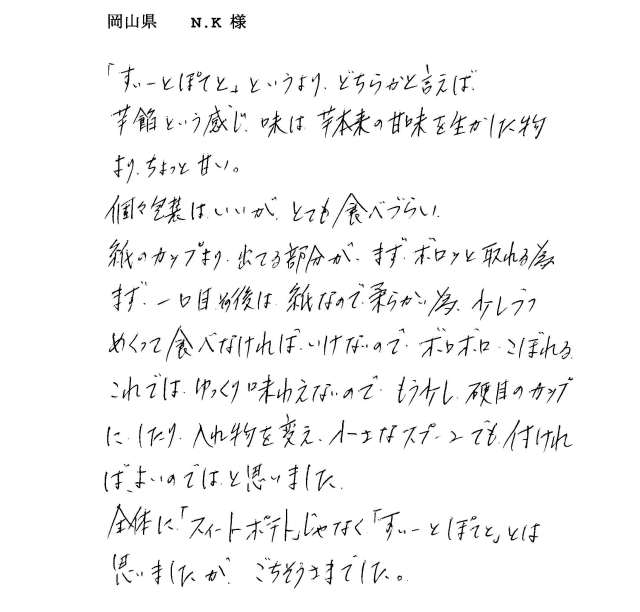 岡山県　N.K 様
「すぃーとぽてと」というより、どちらかと言えば、
芋餡という感じ、味は、芋本来の甘味を生かした物
より、ちょっと甘い。
個々包装は、いいが、とても食べづらい、
紙のカップより、出てる部分が、まず、ボロッと取れる為
まず、一口目その後は、紙なので柔らかい為、少しづつ
めくって食べなければ、いけないので、ボロボロ、こぼれる、
これでは、ゆっくり味わえないので、もう少し、硬目のカップ
に、したり、入れ物を変え、小さなスプーンでも、付けれ
ば、よいのでは、と思いました、
全体に、「スィートポテト」じゃなく「すぃーとぽてと」とは
思いましたが、ごちそうさまでした。